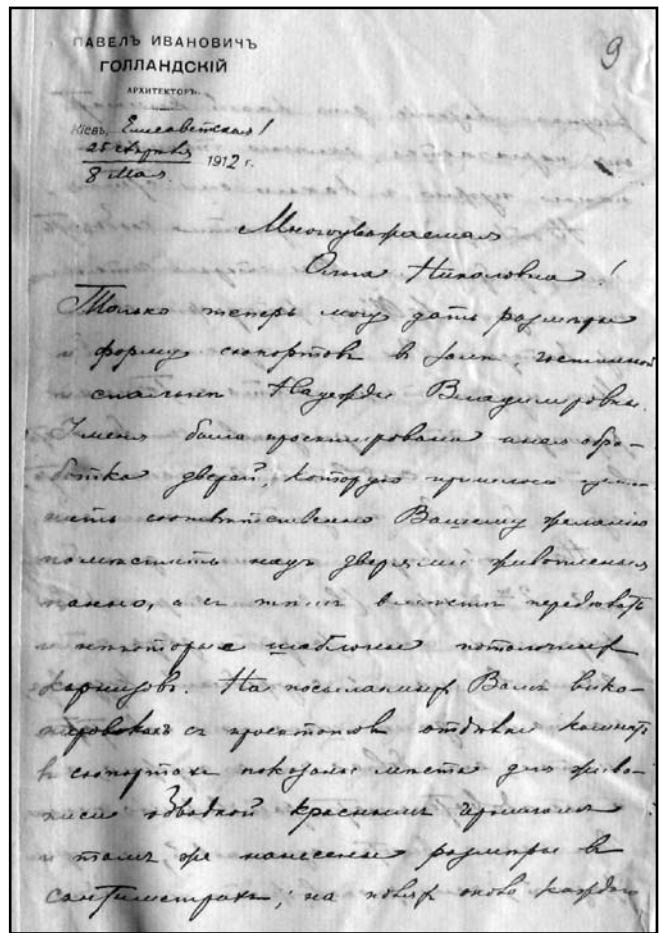 ПАВЕЛЪ ИВАНОВИЧЪ
ГОЛЛАНДСКІЙ
АРХИТЕКТОРЪ.
9
Кіевъ, Елисаветская 1
25 апрѣля
8 Мая. 1912 г.
Многоуважаемая
Ольга Николовна!
Только теперь могу дать размѣры
и форму сюпортовъ в залѣ, гостинной
спальнѣ Надежды Владимировны.
У меня была проектирована иная обра-
ботка дверей, которую пришлось
соотвѣтственно Вашему желанію
помѣстить надъ дверями живописныя
панно, а съ тѣмъ вмѣстѣ передѣлать
и нѣкоторые шаблоны потолочныхъ
карнизовъ. На посылаемыхъ Вамъ вико-
пировкахъ съ проектовъ отдѣлки комнатъ
в сюпортахъ показаны мѣста для живо-
писи обводкой краснымъ
и тамъ же нанесены размѣры въ
сантиметрахъ; на поляхъ около каждаго